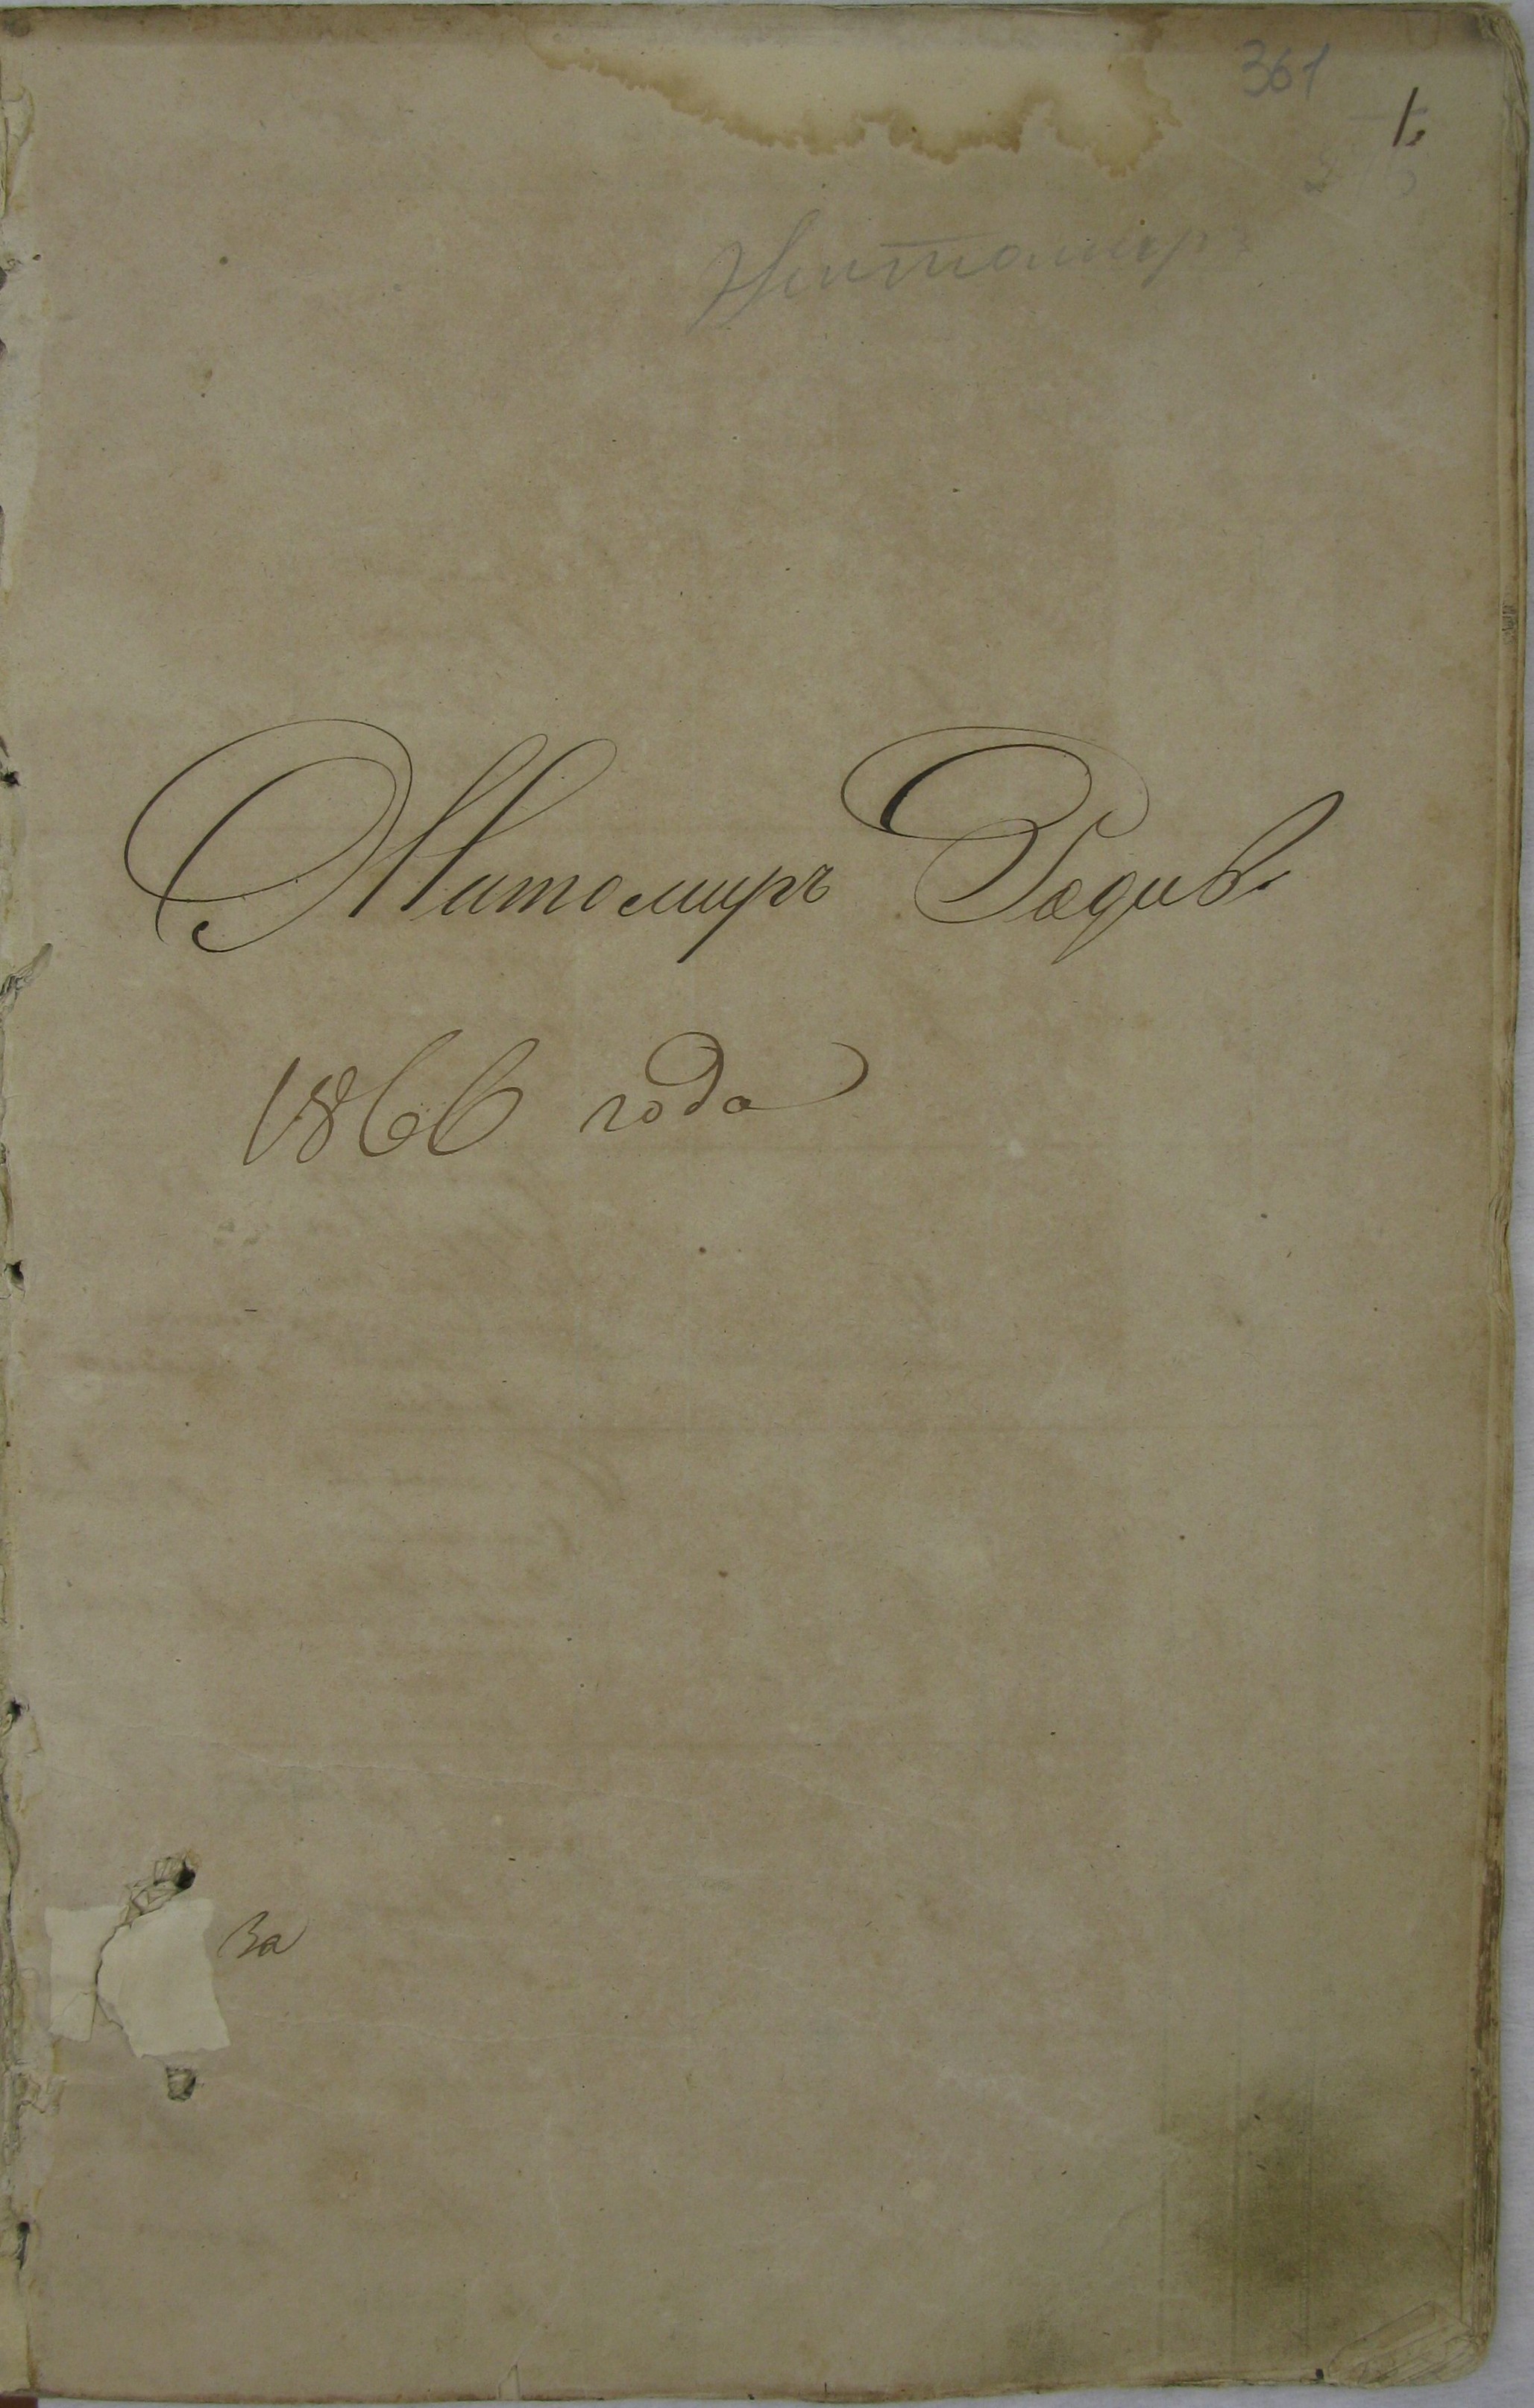 361
1.
Житомиръ
Житомиръ Родив.
1866 года
За